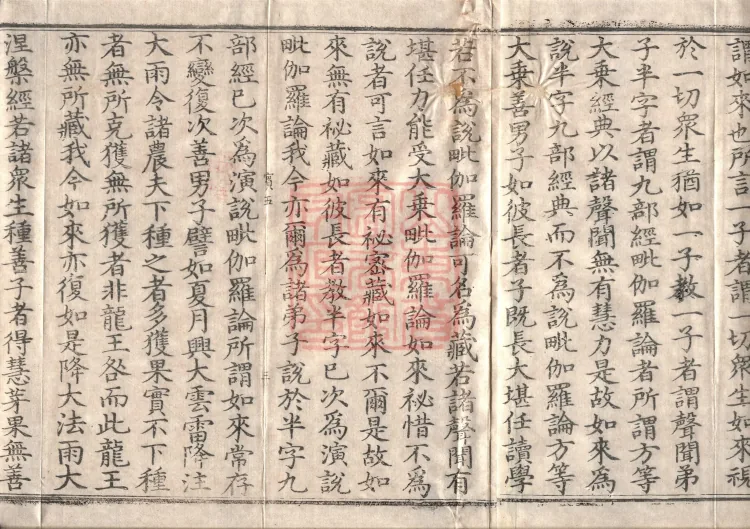 謂如來也所言一子者謂一切衆生如來視
於一切衆生猶如一子教一子者謂聲聞弟
子半字者謂九部經毗伽羅論者所謂方等
大乘經典以諸聲聞無有慧力是故如來爲
說半字九部經典而不爲說毗伽羅論方等
大乘善男子如彼長者子既長大堪任讀學
若不爲說毗伽羅論可名爲藏若諸聲聞有
堪任力能受大乘毗伽羅論如來祕惜不爲
說者可言如來有祕密藏如來不爾是故如
來無有祕藏如彼長者教半字已次爲演說
毗伽羅論我今亦爾爲諸弟子說於半字九
寶五
三
部經已次爲演說毗伽羅論所謂如來常存
不變復次善男子譬如夏月興大雲雷降注
大雨令諸農夫下種之者多獲果實不下種
者無所克獲無所獲者非龍王咎而此龍王
亦無所藏我今如來亦復如是降大法雨大
涅槃經若諸衆生種善子者得慧芽果無善